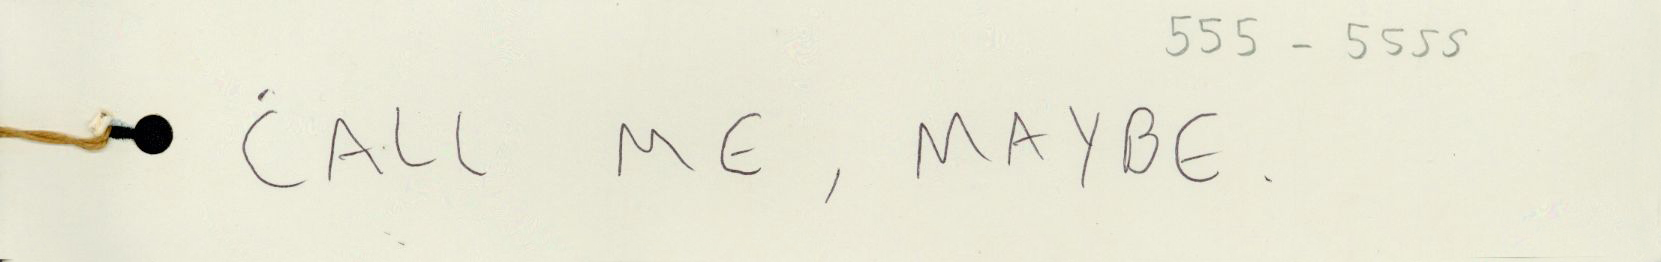 555 - 5555
CALL ME, MAYBE.